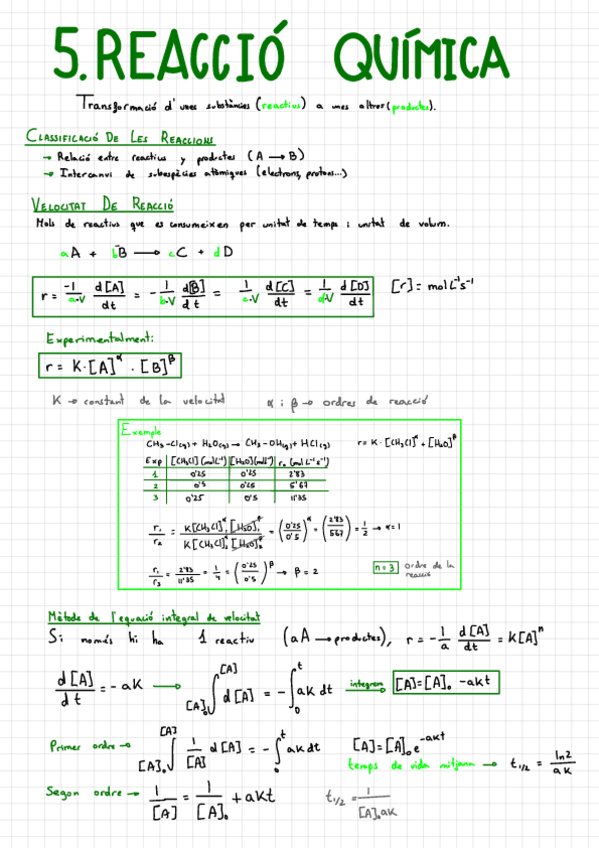 5. REACCIÓ QUÍMICA
Transformació d'unes substàncies (reactius) a unes altres (productes).
CLASSIFICACIÓ DE LES REACCIONS
→ Relació entre reactius y productes (A → B)
→ Intercanvi de subespècies atòmiques (electrons, protons...)
VELOCITAT DE REACCIÓ
Mols de reactius que es consumeixen per unitat de temps i unitat de volum.
aA + bB → cC + dD
r = -1/a·V d[A]/dt = - 1/b·V d[B]/dt = 1/c·V d[C]/dt = 1/d·V d[D]/dt [r] = mol L⁻¹ s⁻¹
Experimentalment:
r = K·[A]^α · [B]^β
K → constant de la velocitat α i β → ordres de reacció
Exemple
CH₃-Cl(g) + H₂O(g) → CH₃-OH(g) + HCl(g) r = K·[CH₃Cl]^α + [H₂O]^β
Exp [CH₃Cl] (mol L⁻¹) [H₂O] (mol L⁻¹) r₀ (mol L⁻¹ s⁻¹)
1 0'25 0'25 2'83
2 0'5 0'25 5'67
3 0'25 0'5 11'35
r₁/r₂ = K[CH₃Cl]₁^α [H₂O]₁^β / K[CH₃Cl]₂^α [H₂O]₂^β = (0'25/0'5)^α = (2'83/5'67) = 1/2 → α = 1
r₁/r₃ = 2'83/11'35 = 1/4 = (0'25/0'5)^β → β = 2 n = 3 ordre de la reacció
Mètode de l'equació integral de velocitat
Si només hi ha 1 reactiu (aA → productes), r = - 1/a d[A]/dt = K[A]^n
d[A]/dt = - aK → ∫[A]₀^[A] d[A] = - ∫₀^t aK dt integrem → [A] = [A]₀ - aKt
Primer ordre → ∫[A]₀^[A] 1/[A] d[A] = - ∫₀^t aK dt [A] = [A]₀ e^-aKt
temps de vida mitjana → t₁/₂ = ln2/aK
Segon ordre → 1/[A] = 1/[A]₀ + aKt t₁/₂ = 1/[A]₀aK